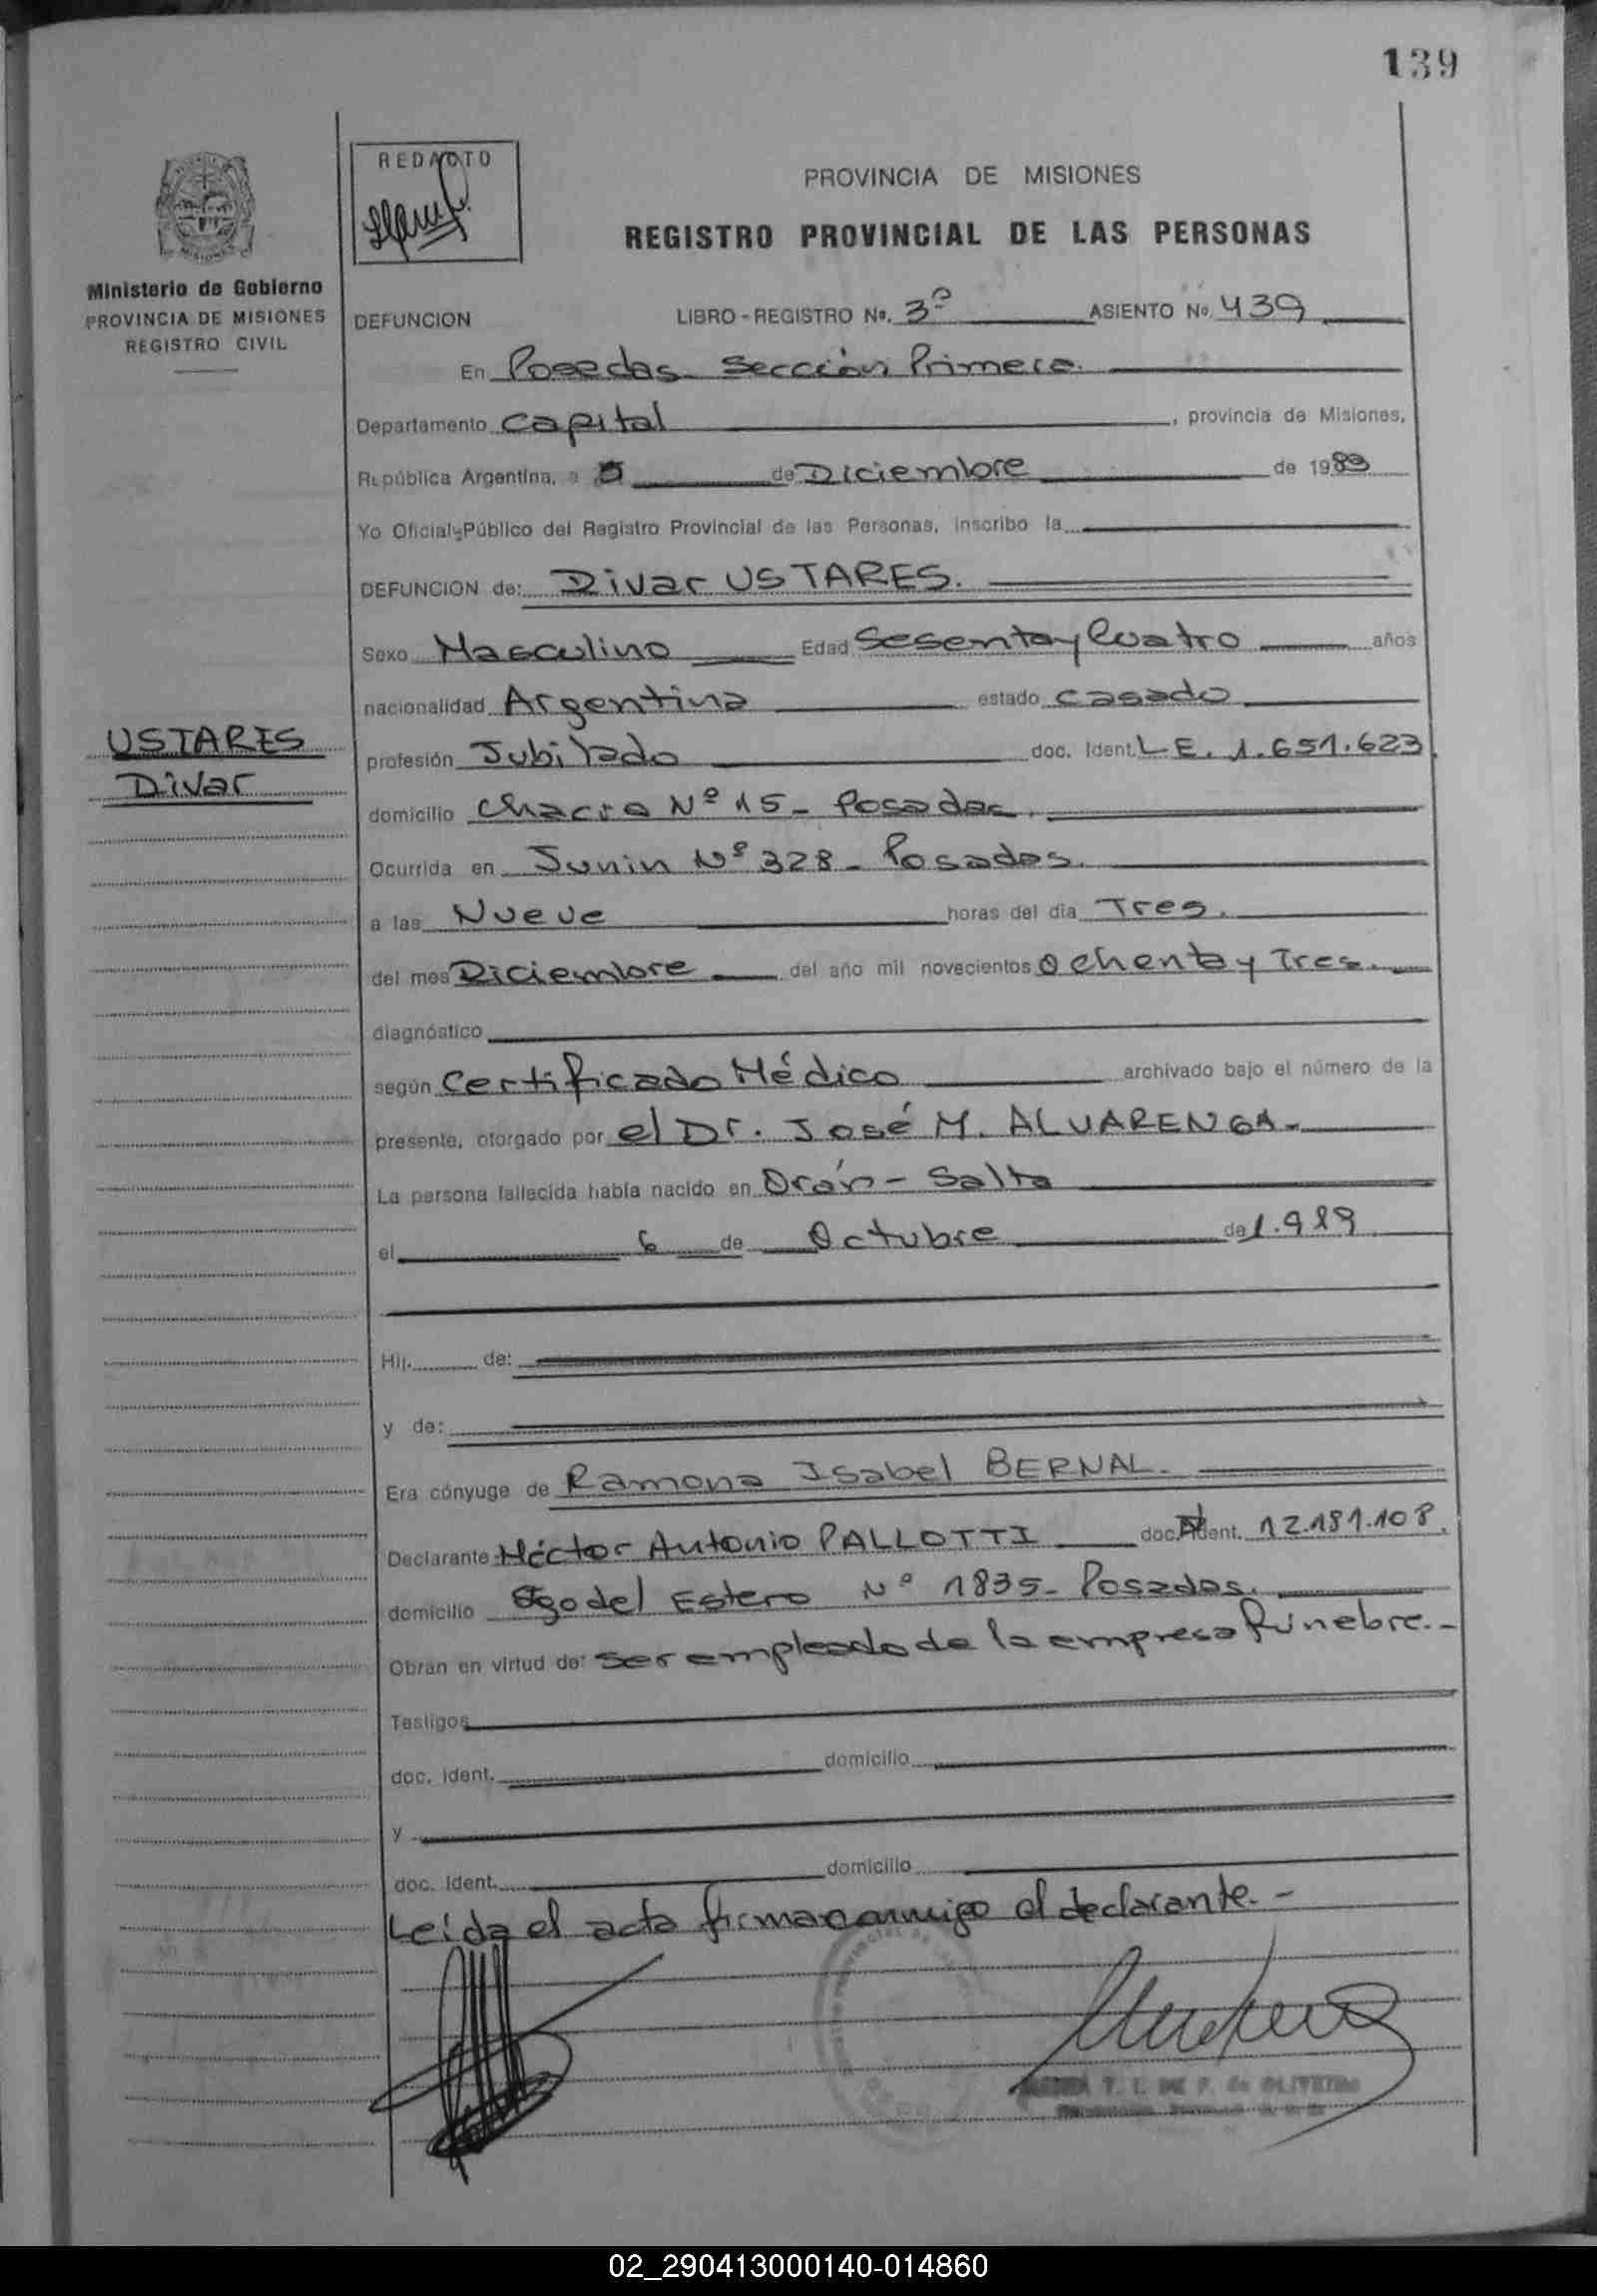 139
REDACTO
PROVINCIA DE MISIONES
REGISTRO PROVINCIAL DE LAS PERSONAS
Ministerio de Gobierno
PROVINCIA DE MISIONES
REGISTRO CIVIL
DEFUNCION LIBRO - REGISTRO No. 3º ASIENTO No. 439
En Posadas - Sección Primera.
Departamento Capital, provincia de Misiones,
República Argentina, a 5 de Diciembre de 1983
Yo Oficial Público del Registro Provincial de las Personas, inscribo la
DEFUNCION de: Divar USTARES.
Sexo Masculino Edad Sesenta y Cuatro años
nacionalidad Argentina estado casado
USTARES
Divar
profesión Jubilado doc. Ident. L.E. 1.651.623.
domicilio Chacra Nº 15 - Posadas.
Ocurrida en Junin Nº 328 - Posadas.
a las Nueve horas del día Tres.
del mes Diciembre del año mil novecientos Ochenta y Tres.
diagnóstico
según Certificado Médico archivado bajo el número de la
presente, otorgado por el Dr. José M. ALVARENGA -
La persona fallecida había nacido en Orán - Salta
el 6 de Octubre de 1.919
Hij. de:
y de:
Era cónyuge de Ramona Isabel BERNAL.
Declarante Héctor Antonio PALLOTTI doc. Ident. 12.181.108.
domicilio Sgo del Estero Nº 1835 - Posadas.
Obran en virtud de: ser empleado de la empresa fúnebre. -
Testigos
doc. Ident. domicilio
y
doc. Ident. domicilio
Leída el acta firma conmigo el declarante. -
T. I. DE P. de OLIVEIRA
02_290413000140-014860